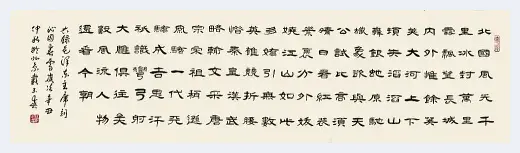 北國風光千
里冰封萬里
雪飄望長城
內外惟餘莽
莽大河上下
頓失滔滔山
舞銀蛇原馳
蠟象欲與天
公試比高須
晴日看紅裝
素裹分外妖
嬈江山如此
多嬌引無數
英雄競折腰
惜秦皇漢武
略輸文采唐
宗宋祖稍遜
風騷一代天
驕成吉思汗
只識彎弓射
大雕俱往矣
數風流人物
還看今朝
錄毛澤東主席詞
沁園春雪歲次辛丑
仲秋於北京